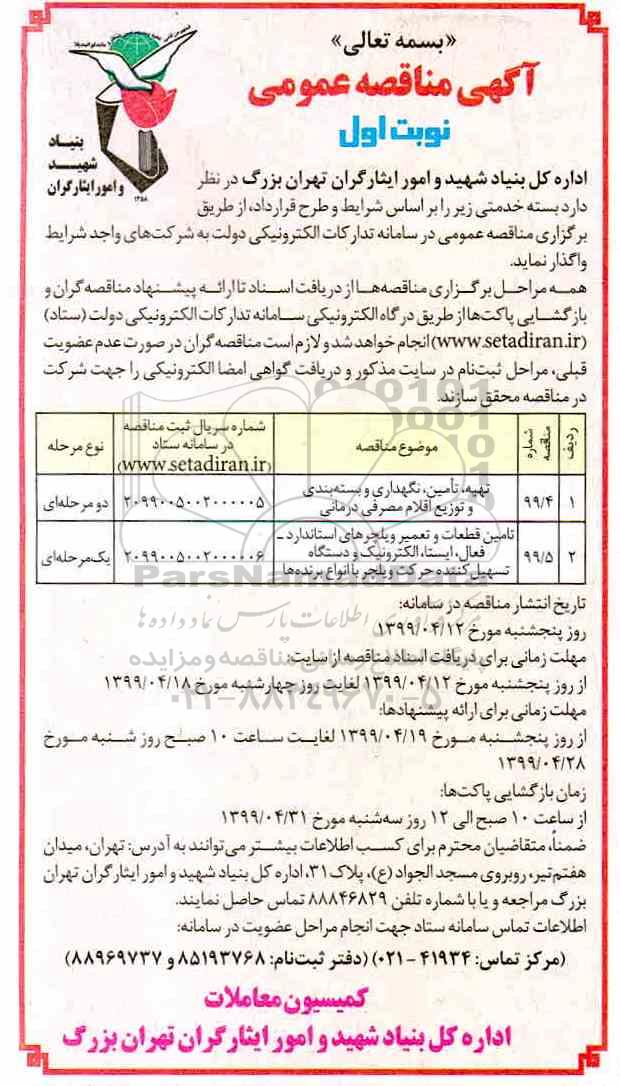 «بسمه تعالی»
آگهی مناقصه عمومی
نوبت اول
بنیاد
شهید
و امور ایثارگران
۱۳۵۸
اداره کل بنیاد شهید و امور ایثارگران تهران بزرگ در نظر
دارد بسته خدمتی زیر را بر اساس شرایط و طرح قرارداد، از طریق
برگزاری مناقصه عمومی در سامانه تدارکات الکترونیکی دولت به شرکت‌های واجد شرایط
واگذار نماید.
همه مراحل برگزاری مناقصه‌ها از دریافت اسناد تا ارائه پیشنهاد مناقصه‌گران و
بازگشایی پاکت‌ها از طریق درگاه الکترونیکی سامانه تدارکات الکترونیکی دولت (ستاد)
(www.setadiran.ir) انجام خواهد شد و لازم است مناقصه‌گران در صورت عدم عضویت
قبلی، مراحل ثبت‌نام در سایت مذکور و دریافت گواهی امضا الکترونیکی را جهت شرکت
در مناقصه محقق سازند.
ردیف شماره مناقصه موضوع مناقصه شماره سریال ثبت مناقصه در سامانه ستاد (www.setadiran.ir) نوع مرحله
۱ ۹۹/۴ تهیه، تأمین، نگهداری و بسته‌بندی و توزیع اقلام مصرفی درمانی ۲۰۹۹۰۰۵۰۰۲۰۰۰۰۰۵ دو مرحله‌ای
۲ ۹۹/۵ تامین قطعات و تعمیر ویلچرهای استاندارد ـ فعال، ایستا، الکترونیک و دستگاه تسهیل‌کننده حرکت ویلچر با انواع برنده‌ها ۲۰۹۹۰۰۵۰۰۲۰۰۰۰۰۶ یک‌مرحله‌ای
ParsNamadData
تاریخ انتشار مناقصه در سامانه:
روز پنجشنبه مورخ ۱۳۹۹/۰۴/۱۲
مهلت زمانی برای دریافت اسناد مناقصه از سایت:
از روز پنجشنبه مورخ ۱۳۹۹/۰۴/۱۲ لغایت روز چهارشنبه مورخ ۱۳۹۹/۰۴/۱۸
۰۲۱-۸۸۳۴۹۶۷۰-۵
مهلت زمانی برای ارائه پیشنهادها:
از روز پنجشنبه مورخ ۱۳۹۹/۰۴/۱۹ لغایت ساعت ۱۰ صبح روز شنبه مورخ
۱۳۹۹/۰۴/۲۸
زمان بازگشایی پاکت‌ها:
از ساعت ۱۰ صبح الی ۱۲ روز سه‌شنبه مورخ ۱۳۹۹/۰۴/۳۱
ضمناً، متقاضیان محترم برای کسب اطلاعات بیشتر می‌توانند به آدرس: تهران، میدان
هفتم‌تیر، روبروی مسجد الجواد (ع)، پلاک ۳۱، اداره کل بنیاد شهید و امور ایثارگران تهران
بزرگ مراجعه و یا با شماره تلفن ۸۸۸۴۶۸۲۹ تماس حاصل نمایند.
اطلاعات تماس سامانه ستاد جهت انجام مراحل عضویت در سامانه:
(مرکز تماس: ۴۱۹۳۴ - ۰۲۱) (دفتر ثبت‌نام: ۸۵۱۹۳۷۶۸ و ۸۸۹۶۹۷۳۷)
کمیسیون معاملات
اداره کل بنیاد شهید و امور ایثارگران تهران بزرگ